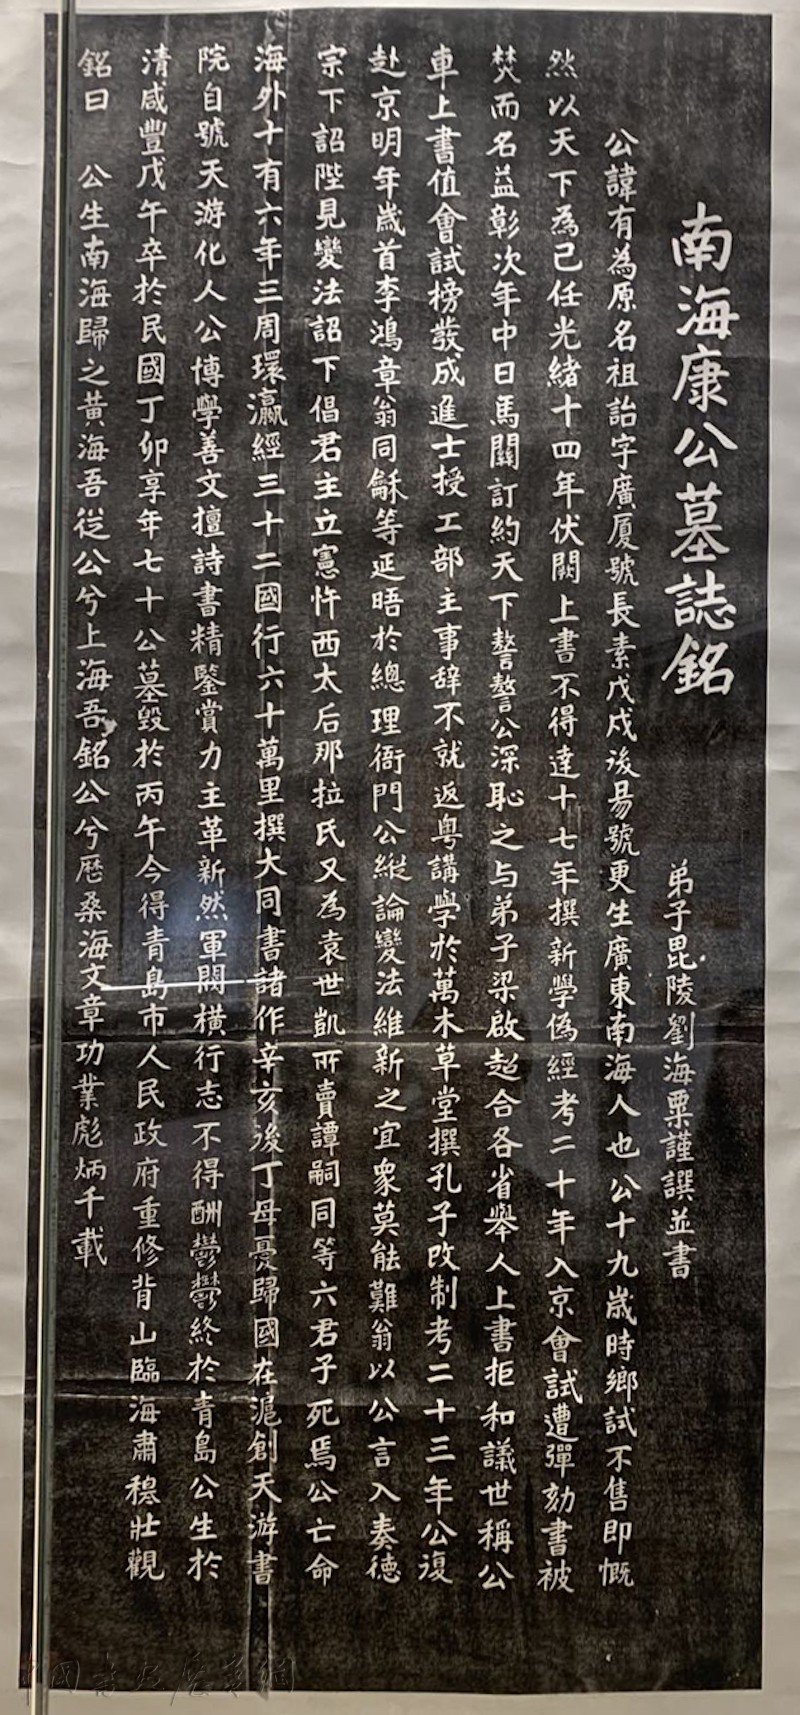 南海康公墓誌銘
弟子毘陵劉海粟謹譔並書
公諱有為原名祖詒字廣厦號長素戊戌後易號更生廣東南海人也公十九歲時鄉試不售即慨
然以天下為己任光緒十四年伏闕上書不得達十七年撰新學偽經考二十年入京會試遭彈劾書被
焚而名益彰次年中日馬關訂約天下謷謷公深恥之与弟子梁啟超合各省舉人上書拒和議世稱公
車上書值會試榜發成進士授工部主事辞不就返粵講學於萬木草堂撰孔子改制考二十三年公復
赴京明年歲首李鴻章翁同龢等延晤於總理衙門公縱論變法維新之宜眾莫能難翁以公言入奏德
宗下詔陛見變法詔下倡君主立憲忤西太后那拉氏又為袁世凱所賣譚嗣同等六君子死焉公亡命
海外十有六年三周環瀛經三十二國行六十萬里撰大同書諸作辛亥後丁母憂歸國在滬創天游書
院自號天游化人公博學善文擅詩書精鑒賞力主革新然軍閥橫行志不得酬鬱鬱終於青島公生於
清咸豐戊午卒於民國丁卯享年七十公墓毀於丙午今得青島市人民政府重修背山臨海肅穆壯觀
銘曰　公生南海歸之黃海吾從公兮上海吾銘公兮歷桑海文章功業彪炳千載
中國書